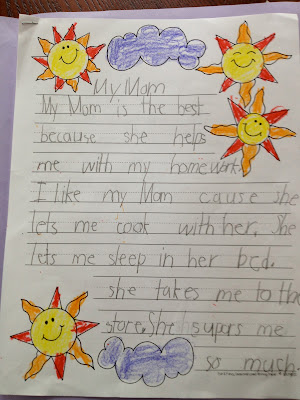 My Mom
My Mom is the best
because she helps
me with my homework.
I like my Mom cause she
lets me cook with her. She
lets me sleep in her bed.
she takes me to the
store. She supors me
so mush.